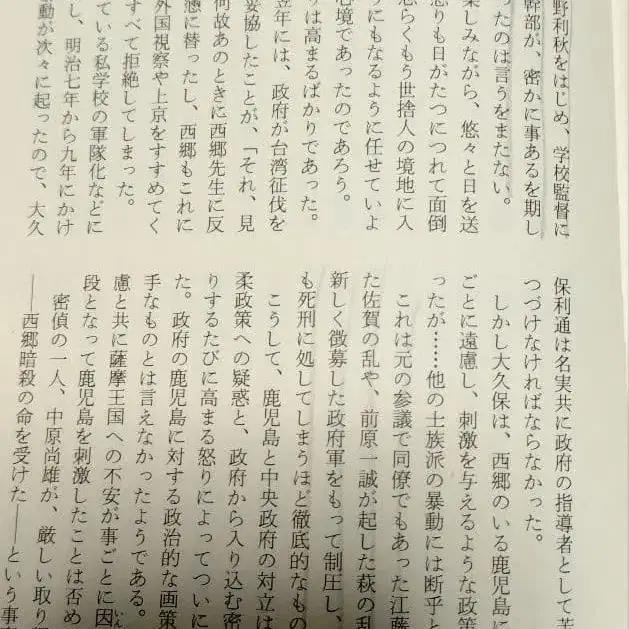 野利秋をはじめ、学校監督に
幹部が、密かに事あるを期し
ったのは言うをまたない。
楽しみながら、悠々と日を送
怒りも日がたつにつれて面倒
恐らくもう世捨人の境地に入
うにもなるように任せていよ
心境であったのであろう。
りは高まるばかりであった。
翌年には、政府が台湾征伐を
妥協したことが、「それ、見
何故あのときに西郷先生に反
憊に替ったし、西郷もこれに
外国視察や上京をすすめてく
すべて拒絶してしまった。
ている私学校の軍隊化などに
し、明治七年から九年にかけ
動が次々に起ったので、大久
保利通は名実共に政府の指導者として苦
つづけなければならなかった。
しかし大久保は、西郷のいる鹿児島に
ごとに遠慮し、刺激を与えるような政策
ったが……他の士族派の暴動には断乎と
これは元の参議で同僚でもあった江藤
た佐賀の乱や、前原一誠が起した萩の乱
新しく徴募した政府軍をもって制圧し、
も死刑に処してしまうほど徹底的なもの
こうして、鹿児島と中央政府の対立は
柔政策への疑惑と、政府から入り込む密
りするたびに高まる怒りによってついに
た。政府の鹿児島に対する政治的な画策
手なものとは言えなかったようである。
慮と共に薩摩王国への不安が事ごとに因
段となって鹿児島を刺激したことは否め
密偵の一人、中原尚雄が、厳しい取り
――西郷暗殺の命を受けた――という事